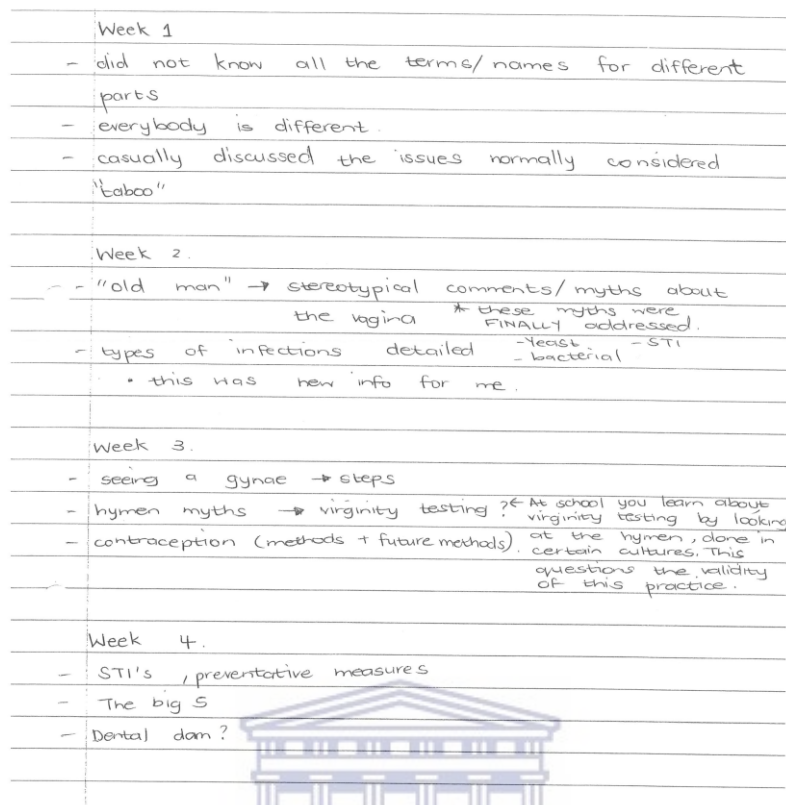 Week 1
- did not know all the terms/names for different
parts
- everybody is different.
- casually discussed the issues normally considered
"taboo"
Week 2.
- "old man" → stereotypical comments/myths about
the vagina * these myths were
FINALLY addressed.
- types of infections detailed -Yeast -STI
- bacterial
• this was new info for me.
Week 3.
- seeing a gynae → steps
- hymen myths → virginity testing ?← At school you learn about
virginity testing by looking
- contraception (methods + future methods). at the hymen, done in
certain cultures. This
questions the validity
of this practice.
Week 4.
- STI's , preventative measures
- The big 5
- Dental dam?